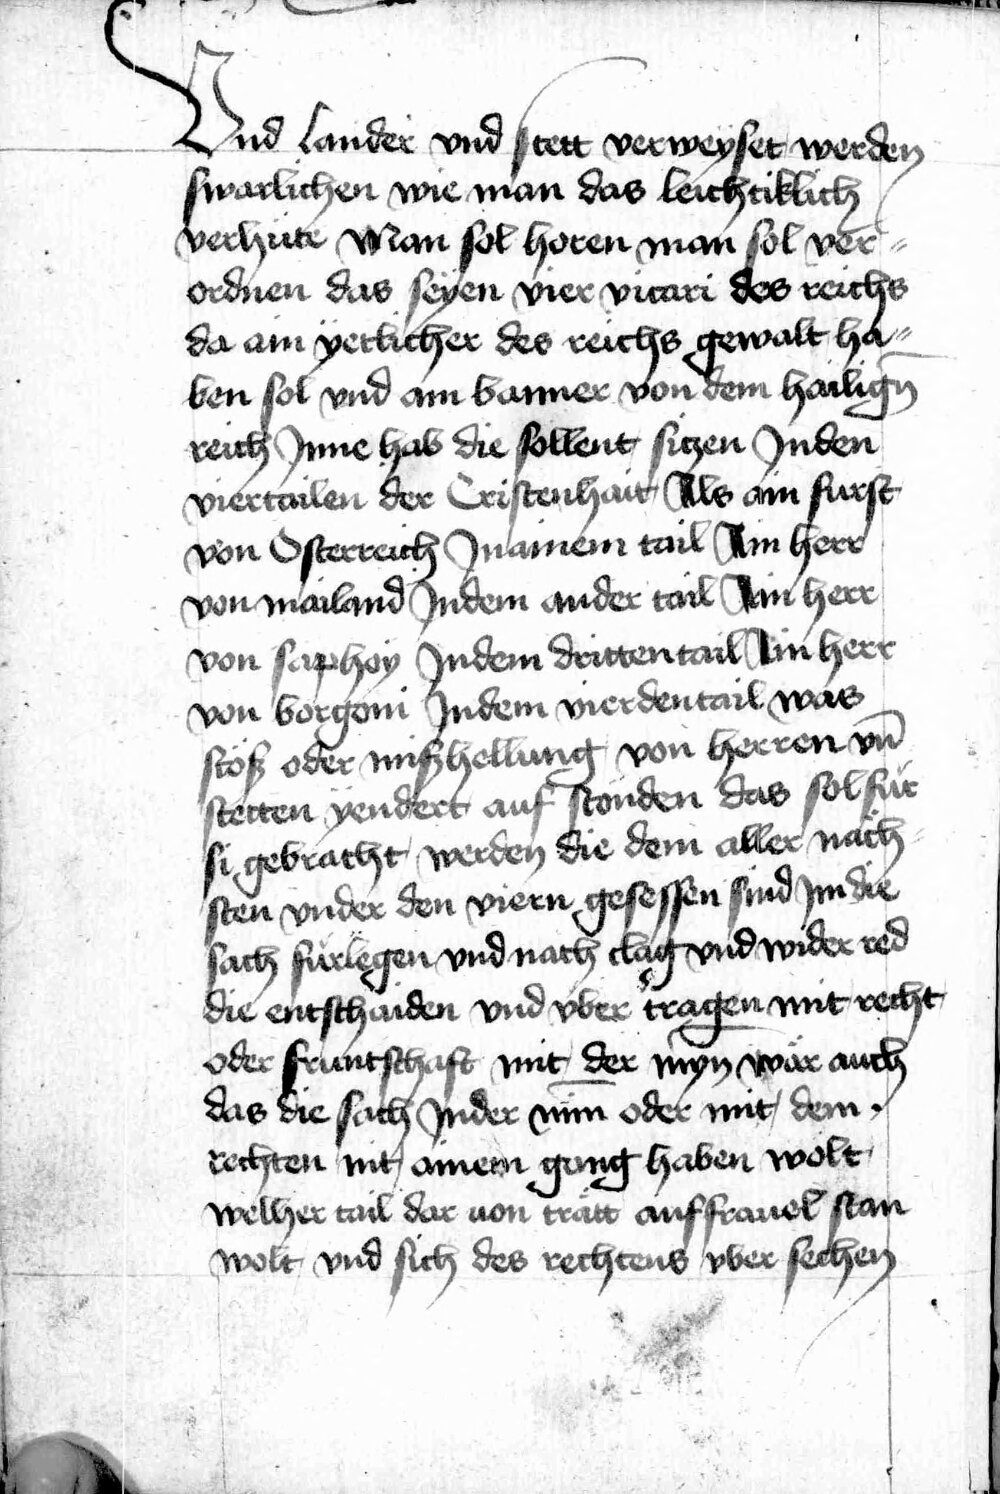 Und Lander vnd stett verweyset werden
swarlichen wie man das leichtiklich
verhüte Man sol horen man sol ver=
ordnen das seyen vier vicari des reichs
da ain ÿetlicher des reichs gewalt ha=
ben sol vnd ain banner von dem hailign̄
reich Inne hab die sollent sitzen Inden
viertailen der Cristenhait Als ain furst
von Osterreich Inainem tail Ain herr
von mailand Indem ander tail Ain herr
von saphoy Indem dritten tail Ain herr
von borgoni Indem vierdentail was
stöß oder mißhellung von herren vn̄
stetten ÿendert auf stönden das sol für
si gebracht werden die dem aller näch=
sten vnder den viern gesessen sind Im die
sach fürlegen vnd nach clag vnd wider red
die entschaiden vnd vber tragen mit recht
oder fruntschaft mit der myn wär auch
das die sach Inder min oder mit dem
rechten nit ainem gang haben wölt
welher tail dar uon trätt auf frauel stan
wolt vnd sich des rechtens vber sechen